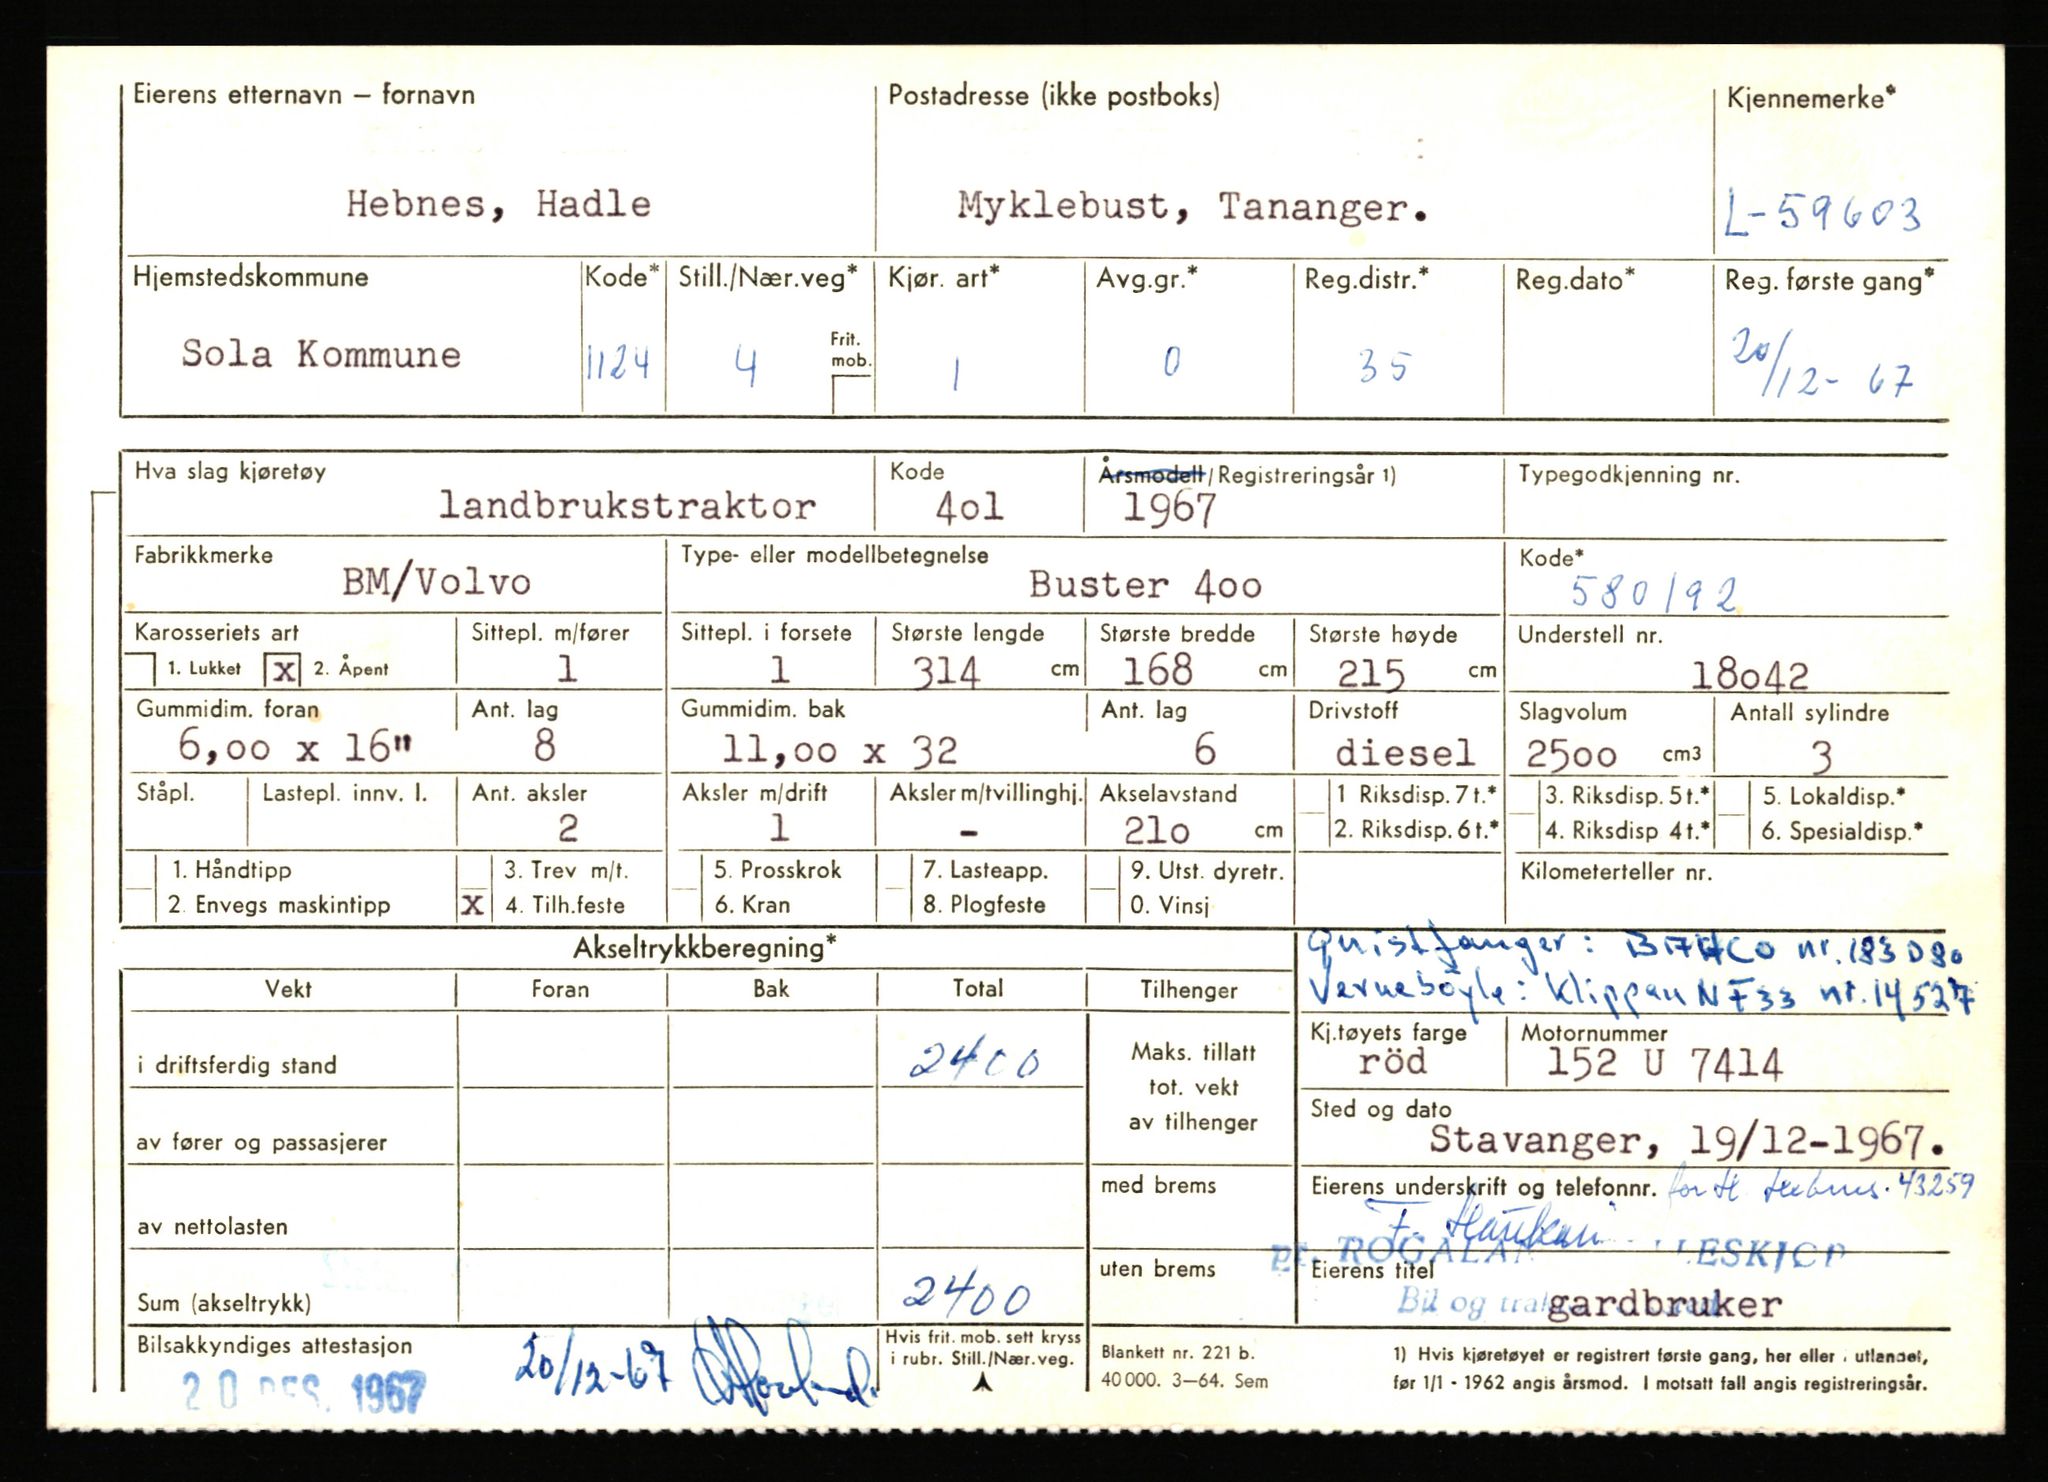 Eierens etternavn – fornavn
Postadresse (ikke postboks)
Kjennemerke*
Hebnes, Hadle
Myklebust, Tananger.
L-59603
Hjemstedskommune
Kode*
Still./Nær.veg*
Kjør. art*
Avg.gr.*
Reg.distr.*
Reg.dato*
Reg. første gang*
Sola Kommune
1124
4
Frit. mob.
1
0
35
20/12-67
Hva slag kjøretøy
Kode
Årsmodell/Registreringsår 1)
Typegodkjenning nr.
landbrukstraktor
4o1
1967
Fabrikkmerke
Type- eller modellbetegnelse
Kode*
BM/Volvo
Buster 4oo
580192
Karosseriets art
Sittepl. m/fører
Sittepl. i forsete
Største lengde
Største bredde
Største høyde
Understell nr.
1. Lukket
x
2. Åpent
1
1
314 cm
168 cm
215 cm
18o42
Gummidim. foran
Ant. lag
Gummidim. bak
Ant. lag
Drivstoff
Slagvolum
Antall sylindre
6,oo x 16"
8
11,oo x 32
6
diesel
25oo cm3
3
Ståpl.
Lastepl. innv. l.
Ant. aksler
Aksler m/drift
Aksler m/tvillinghj.
Akselavstand
1 Riksdisp. 7 t.*
3. Riksdisp. 5 t.*
5. Lokaldisp.*
2
1
-
21o cm
2. Riksdisp. 6 t.*
4. Riksdisp 4 t.*
6. Spesialdisp.*
1. Håndtipp
3. Trev m/t.
5. Prosskrok
7. Lasteapp.
9. Utst. dyretr.
Kilometerteller nr.
2. Envegs maskintipp
x
4. Tilh.feste
6. Kran
8. Plogfeste
0. Vinsj
Akseltrykkberegning*
Gnistfanger: BAHCO nr. 183080
Vernebøyle: Klippan NF33 nr. 14527
Vekt
Foran
Bak
Total
Tilhenger
Kj.tøyets farge
Motornummer
röd
152 U 7414
i driftsferdig stand
2400
Maks. tillatt
tot. vekt
av tilhenger
Sted og dato
Stavanger, 19/12-1967.
av fører og passasjerer
med brems
Eierens underskrift og telefonnr. for H. Hebnes. 43259
av nettolasten
uten brems
Eierens titel
gardbruker
Bil og
Sum (akseltrykk)
2400
Bilsakkyndiges attestasjon
20/12-67
20 DES. 1967
Hvis frit. mob. sett kryss
i rubr. Still./Nær.veg.
Blankett nr. 221 b.
40 000. 3–64. Sem
1) Hvis kjøretøyet er registrert første gang, her eller i utlandet,
før 1/1 - 1962 angis årsmod. I motsatt fall angis registreringsår.